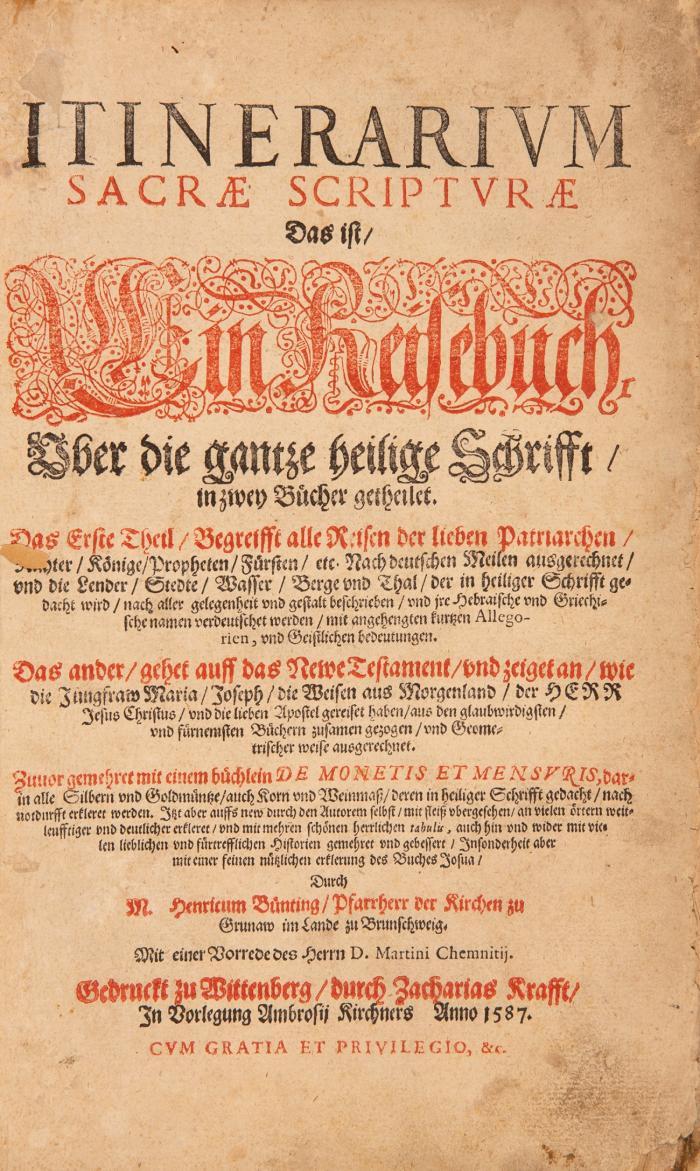 ITINERARIVM
SACRÆ SCRIPTVRÆ
Das ist/
Ein Reisebuch,
Vber die gantze heilige Schrifft /
in zwey Bücher getheilet.
Das Erste Theil / Begreifft alle Reisen der lieben Patriarchen /
Richter / Könige/Propheten/Fürsten / etc. Nach deutschen Meilen ausgerechnet/
vnd die Lender / Stedte / Wasser / Berge vnd Thal / der in heiliger Schrifft ge-
dacht wird / nach aller gelegenheit vnd gestalt beschrieben / vnd jre Hebraische vnd Griechi-
sche namen verdeutschet werden / mit angehengten kurtzen Allego-
rien, vnd Geistlichen bedeutungen.
Das ander/ gehet auff das Newe Testament/vnd zeiget an / wie
die Jungfraw Maria / Joseph / die Weisen aus Morgenland / der HERR
Jesus Christus / vnd die lieben Apostel gereiset haben/aus den glaubwirdigsten /
vnd fürnemsten Büchern zusamen gezogen / vnd Geome-
trischer weise ausgerechnet.
Zuuor gemehret mit einem büchlein DE MONETIS ET MENSVRIS, dar-
in alle Silbern vnd Goldmüntze/auch Korn vnd Weinmaß/ deren in heiliger Schrifft gedacht/ nach
notdurfft erkleret werden. Jtzt aber auffs new durch den Autorem selbst / mit fleiß vbergesehen/ an vielen örtern weit-
leufftiger vnd deutlicher erkleret / vnd mit mehren schönen herrlichen tabulis, auch hin vnd wider mit vie-
len lieblichen vnd fürtrefflichen Historien gemehret vnd gebessert / Jnsonderheit aber
mit einer feinen nützlichen erklerung des Buches Josua /
Durch
M. Henricum Bünting/ Pfarrherr der Kirchen zu
Grunaw im Lande zu Brunschweig.
Mit einer Vorrede des Herrn D. Martini Chemnitij.
Gedruckt zu Wittenberg / durch Zacharias Krafft/
Jn Vorlegung Ambrosij Kirchners Anno 1587.
CVM GRATIA ET PRIVILEGIO, &c.